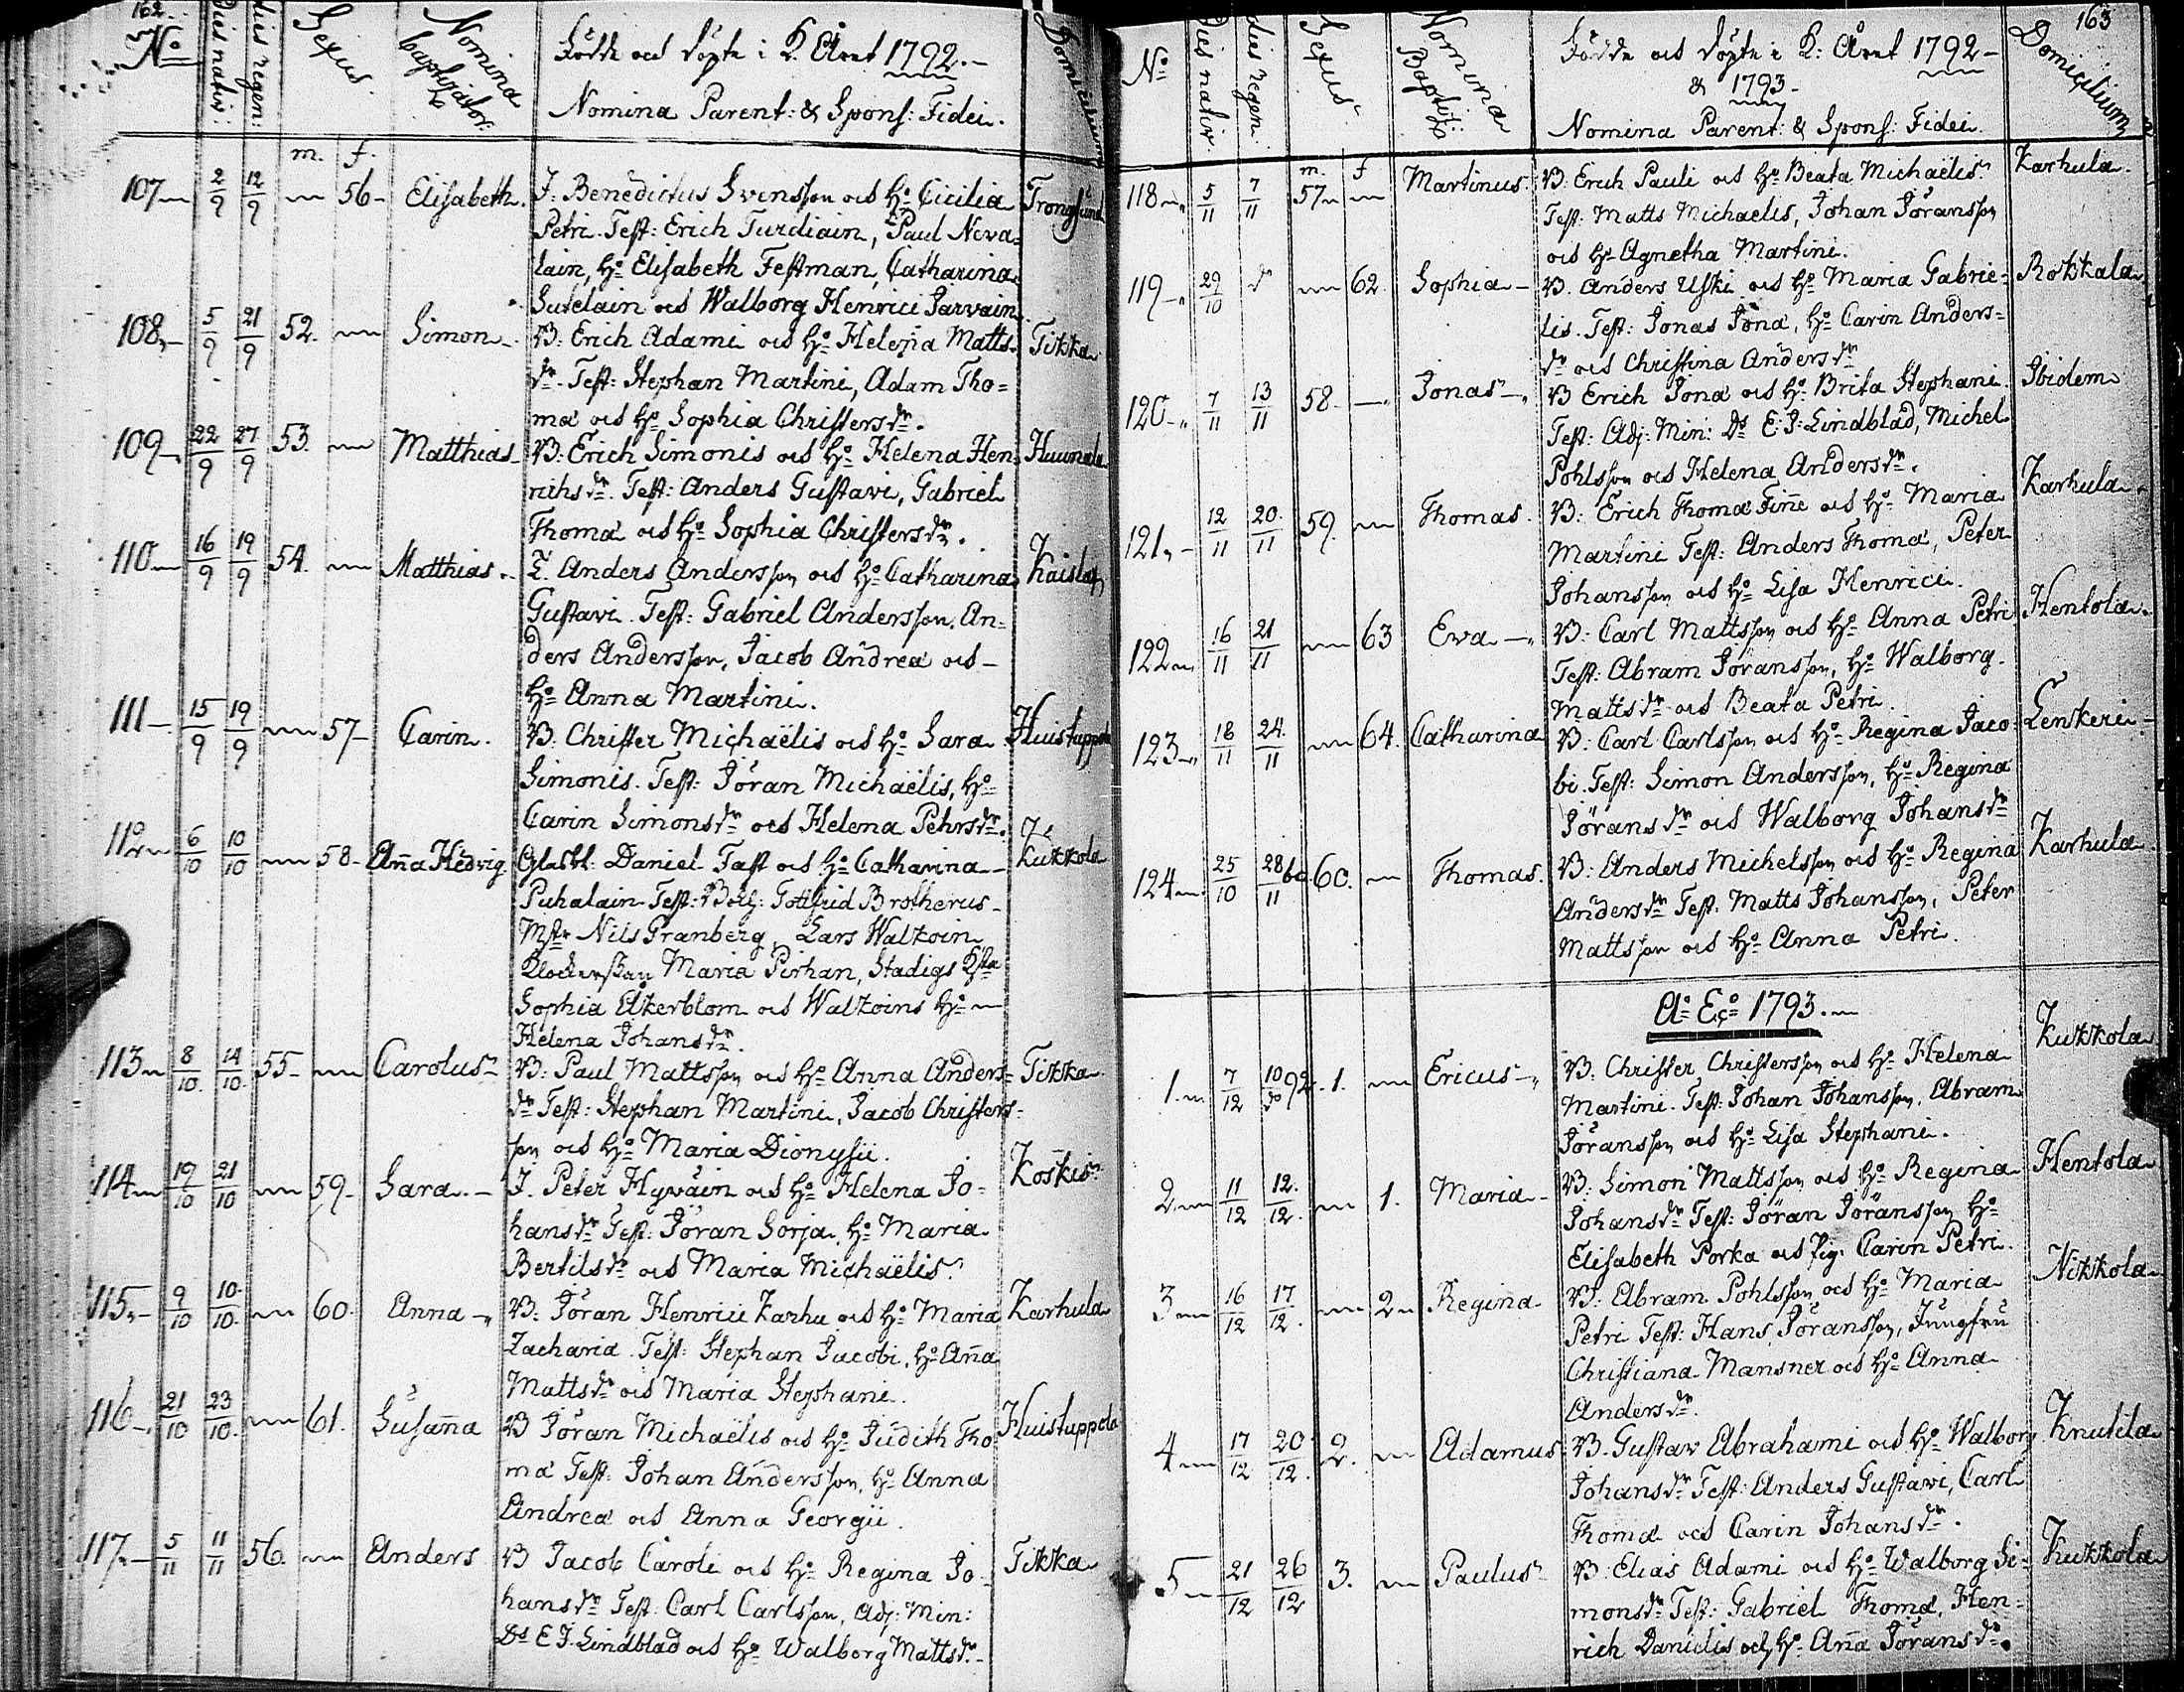 162.
No Dies nativ: dies regen: Sexus. Nomina baptisator: Födde och döpte i K. Året 1792.
Nomina Parent: & Spons: Fidei. Domicilium
m. f.
107 2/9 12/9 56 Elisabeth. J. Benedictus Svensson och Ho Cicilia Trongsund
Petri. Test: Erich Turdiain, Paul Neva=
lain, Ho Elisabeth Festman, Catharina
Sutelain och Walborg Henrici Jarvain
108, 5/9 21/9 52. Simon B: Erich Adami och Ho Helena Matts Tikka
dr. Test: Stephan Martini, Adam Tho=
mæ och Ho Sophia Christersdr.
109, 22/9 27/9 53. Matthias B: Erich Simonis och Ho Helena Hen Huunala
richsdr. Test: Anders Gustavi, Gabriel
Thomæ och Ho Sophia Christersdr.
110 16/9 19/9 54. Matthias. T. Anders Andersson och Ho Catharina Kaislax
Gustavi. Test: Gabriel Andersson, An=
ders Andersson, Jacob Andreæ och
Ho Anna Martini.
111 15/9 19/9 57 Carin. B: Christer Michaëlis och Ho Sara Huistuppola
Simonis. Test: Jöran Michaëlis, Ho
Carin Simonsdr och Helena Pehrsdr.
112 6/10 10/10 58 Aña Hedvig. Glasbl: Daniel Tast och Ho Catharina Kukkola
Puhalain Test: Gottfrid Brotherus
Mstr Nils Granberg, Lars Walkoin
Klockerskan Maria Pirhan, Stadigs
Sophia Åkerblom och Walkoins Ho
Helena Johansdr.
113 8/10. 14/10. 55 Carolus B: Paul Mattsson och Ho Anna Anders= Tikka
dr Test: Stephan Martini, Jacob Christers=
son och Ho Maria Dionysii.
114 19/10 21/10 59 Sara. J. Peter Hyväin och Ho Helena Jo= Koskis
hansdr Test: Jöran Sorja, Ho Maria
Bertilsdr och Maria Michaëlis.
115, 9/10 10/10. 60. Anna B: Jöran Henrici Karhu och Ho Maria Karhula
Zachariæ. Test: Stephan Jacobi, Ho Aña
Mattsdr och Maria Stephani.
116 21/10 23/10. 61. Susaña B Jöran Michaëlis och Ho Judith Tho Huistuppola
mæ Test: Johan Andersson, Ho Anna
Andreæ och Anna Georgii.
117. 5/11 11/11 56. Anders B Jacob Caroli och Ho Regina Jo= Tikka
hansdr Test: Carl Carlsson, Adj: Min:
Ds E J. Lindblad och Ho Walborg Mattsdr.
163
No Dies nativ. dies regen. Sexus Nomina Baptis: Födde och döpte i K: Året 1792
& 1793
Nomina Parent: & Spons: Fidei. Domicilium
m. f
118 5/11 7/11 57 Martinus. B: Erich Pauli och Ho Beata Michaëlis Karhula.
Test: Matts Michaelis, Johan Jöransson
och Ho Agnetha Martini.
119 29/10 do 62 Sophia B. Anders Uski och Ho Maria Gabrie= Rokkala
lis. Test: Jonas Jonæ, Ho Carin Anders=
dr och Christina Andersdr
120 7/11 13/11 58. Jonas B Erich Jonæ och Ho Brita Stephani Ibidem
Test: Adj: Min: Ds E: J: Lindblad, Michel
Pohlsson och Helena Andersdr.
121, 12/11 20/11 59. Thomas. B: Erich Thomæ Fiñe och Ho Maria Karhula
Martini Test: Anders Thomæ, Peter
Johansson och Ho Lisa Henrici.
122 16/11 21/11 63 Eva B: Carl Mattsson och Ho Anna Petri Hentola.
Test: Abram Jöransson, Ho Walborg
Mattsdr och Beata Petri.
123 18/11 24/11 64. Catharina B: Carl Carlsson och Ho Regina Jaco Lenskeri
bi. Test: Simon Andersson, Ho Regina
Jöransdr och Walborg Johansdr
124 25/10 28/11 60. Thomas. B: Anders Michelsson och Ho Regina Karhula
Andersdr Test. Matts Johansson, Peter
Mattsson och Ho Anna Petri.
Ao Eco 1793.
1. 7/12 10/do 92. 1. Ericus B: Christer Christersson och Ho Helena Kukkola
Martini. Test: Johan Johansson, Abram
Jöransson och Ho Lisa Stephani.
2 11/12 12./12. 1. Maria B: Simon Mattsson och Ho Regina Hentola
Johansdr Test: Jöran Jöransson Ho
Elisabeth Porka och Pig. Carin Petri.
3 16/12 17/12. 2 Regina B: Abram Pohlsson och Ho Maria Nikkola
Petri Test: Hans Jöransson, Jungfru
Christiana Mansner och Ho Anna
Andersdr.
4 17/12 20/12. 2. Adamus B. Gustav Abrahami och Ho Walborg Knutila
Johansdr Test: Anders Gustavi, Carl
Thomæ och Carin Johansdr.
5 21/12 26/12 3. Paulus B: Elias Adami och Ho Walborg Si= Kukkola
monsdr Test: Gabriel Thomæ, Hen=
rich Danielis och Ho Aña Jöransdr.